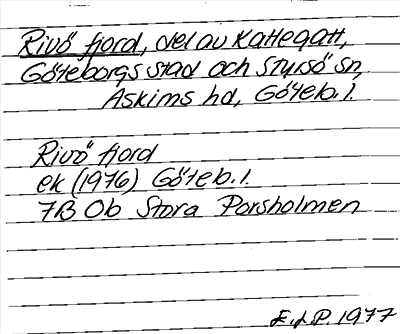 Rivö fjord, del av Kattegatt,
Göteborgs stad och Styrsö sn,
Askims hd, Göteb. l.
Rivö fjord
ek (1976) Göteb. l.
7B Ob Stora Porsholmen
E.J.P. 1977